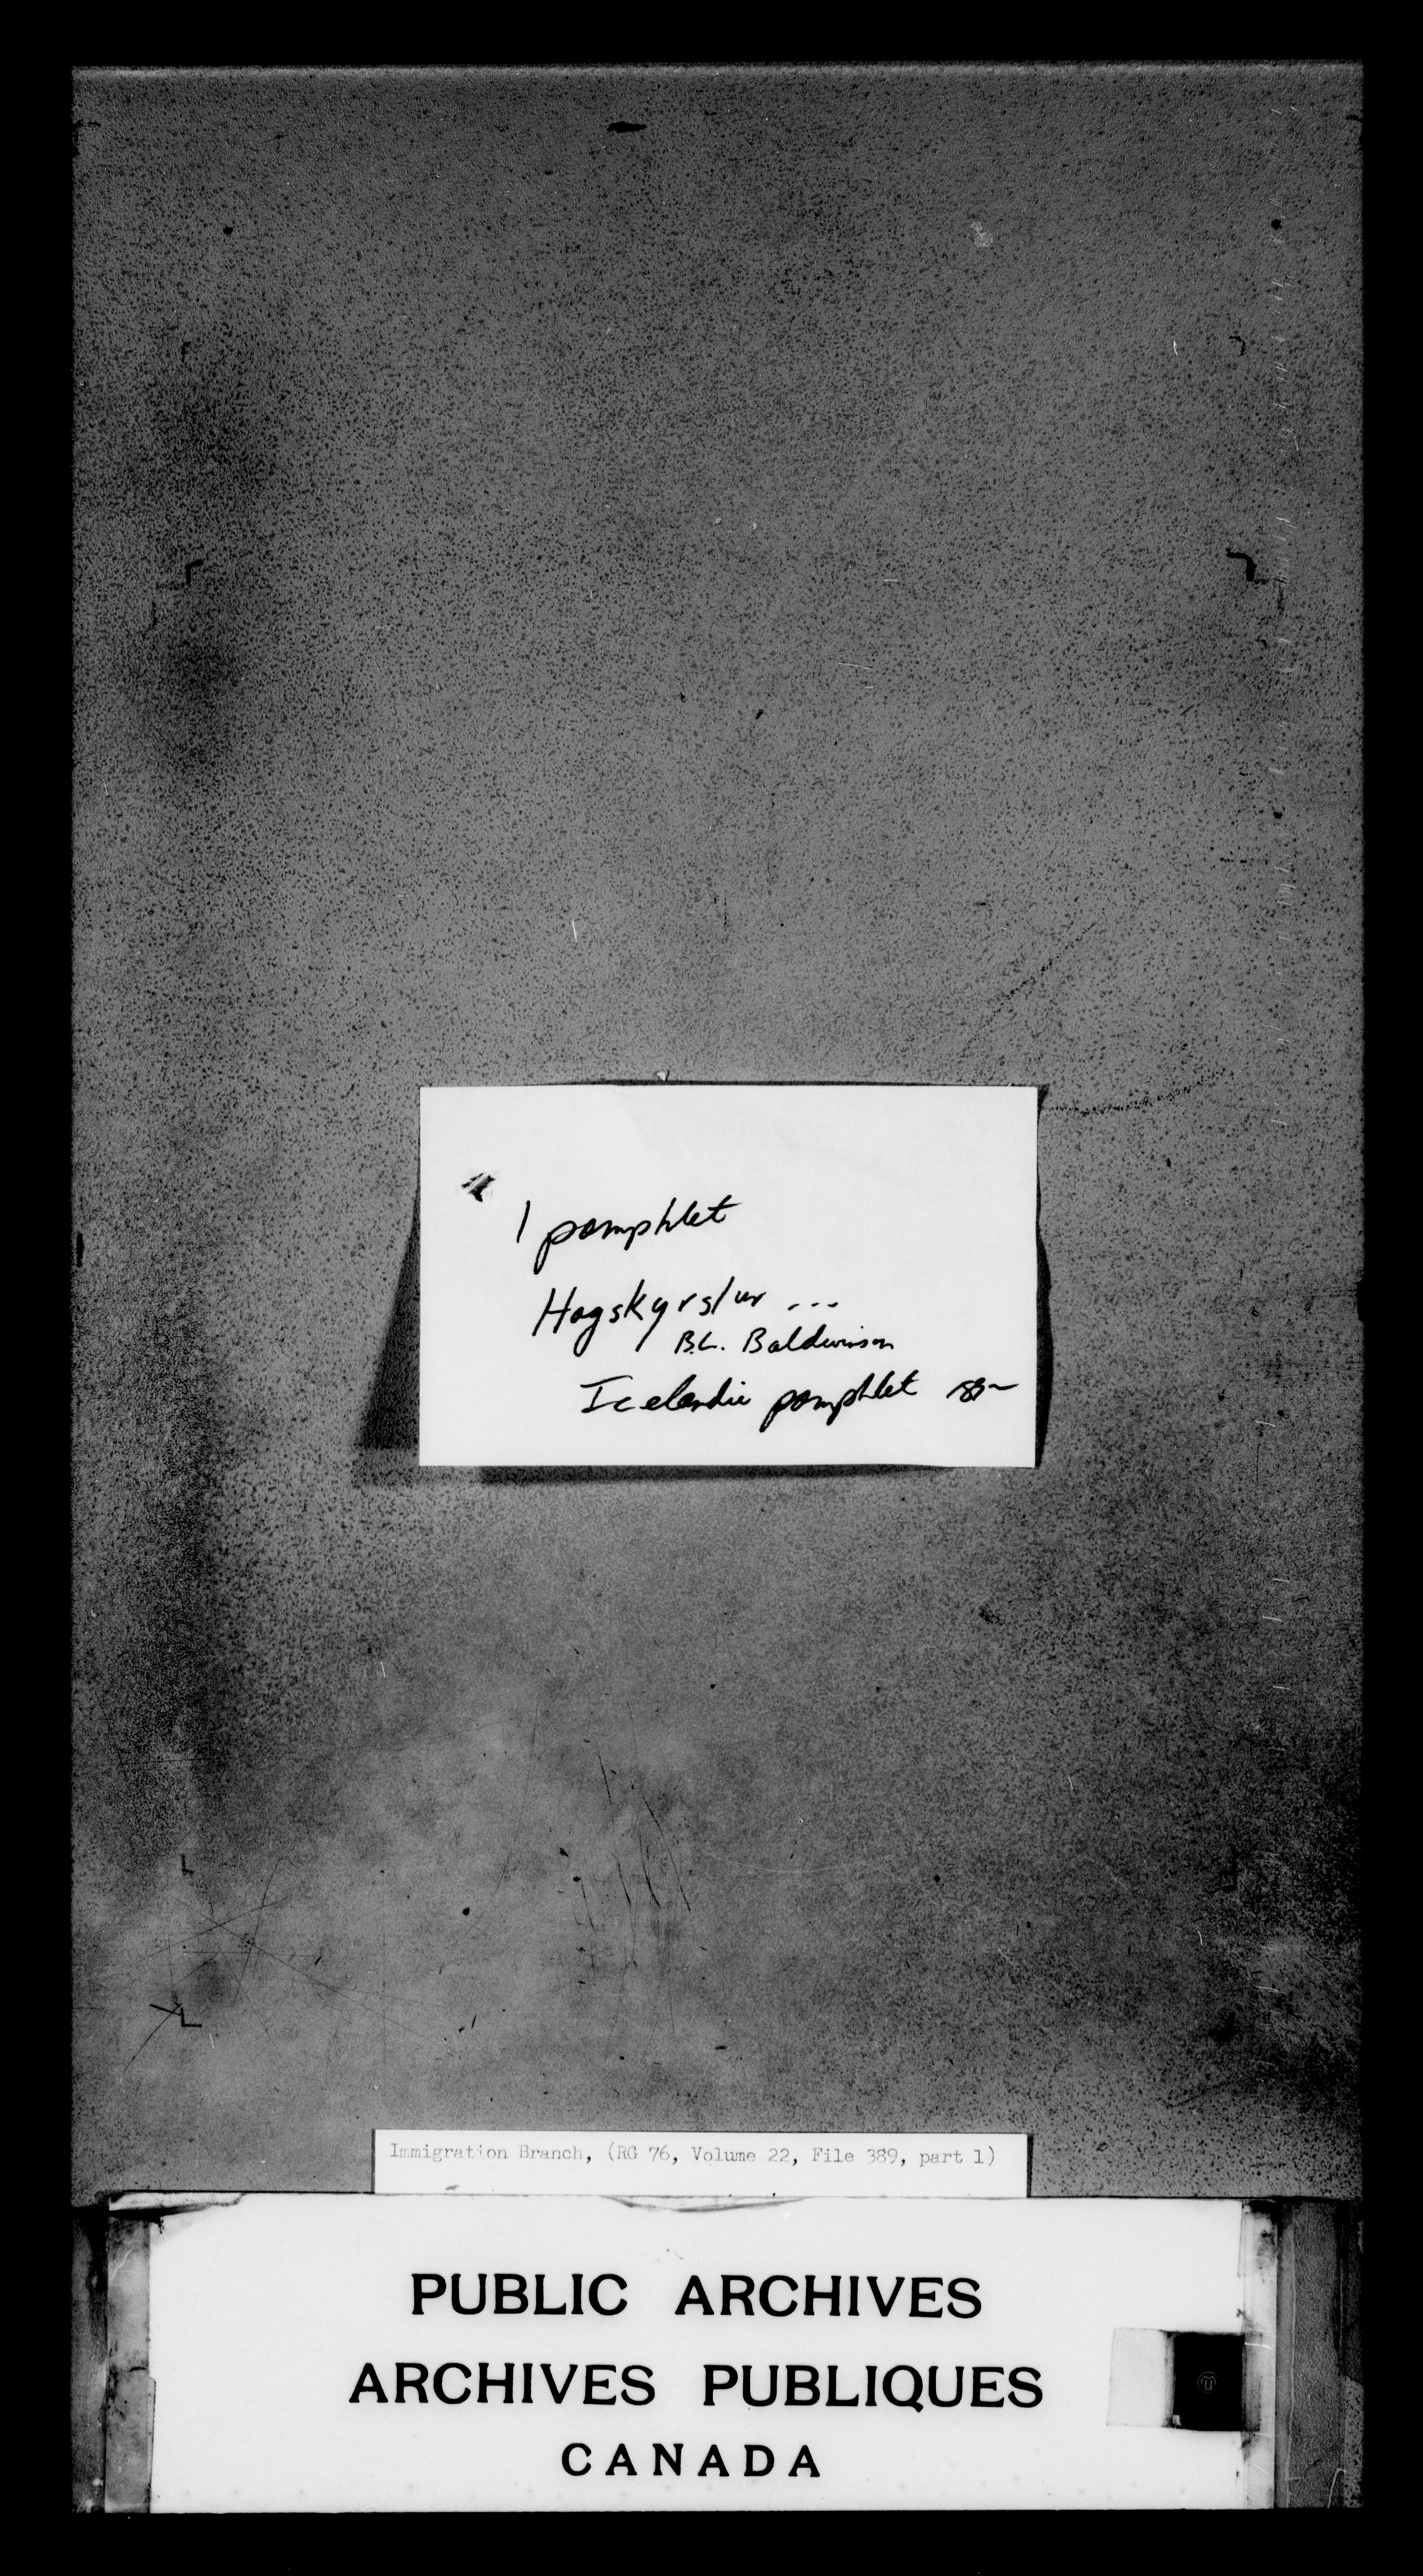 1 pamphlet
Hagskyrslur ...
B.L. Baldwinson
Icelandic pamphlet
Immigration Branch, (RG 76, Volume 22, File 389, part 1)
PUBLIC ARCHIVES
ARCHIVES PUBLIQUES
CANADA